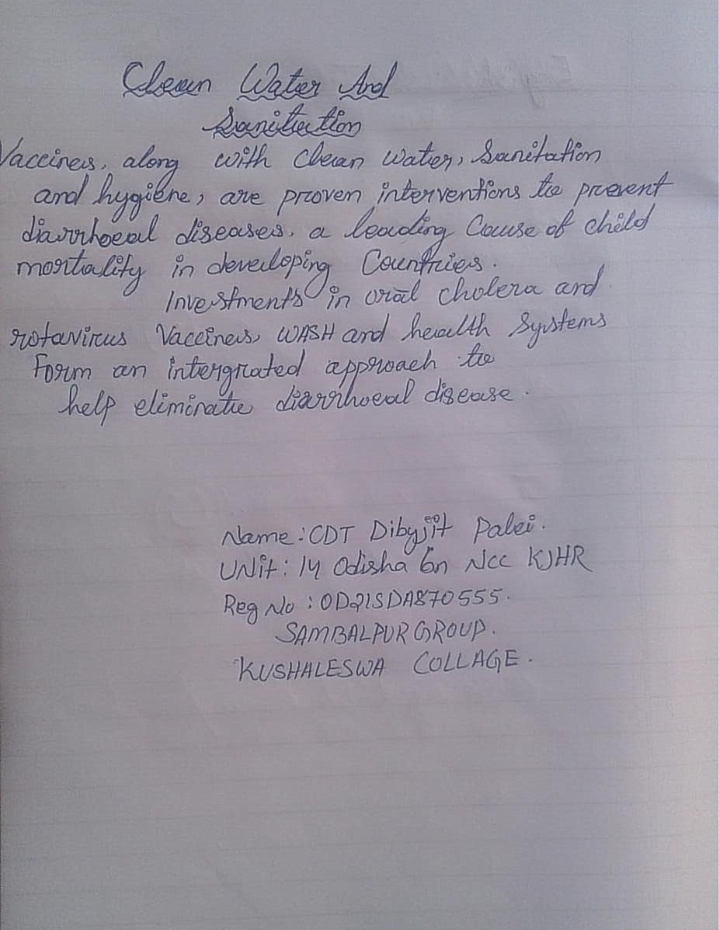 Clean Water And
Sanitation
Vaccines, along with Clean water, Sanitation
and hygiene, are proven interventions to prevent
diarrhoeal diseases, a leading Cause of child
mortality in developing Countries.
Investments in oral cholera and
rotavirus Vaccines, WASH and health Systems
Form an intergrated approach to
help eliminate diarrhoeal disease.
Name: CDT Dibyjit Palei.
UNit: 14 Odisha Bn Ncc KJHR
Reg No: OD21SDA870555.
SAMBALPUR GROUP.
KUSHALESWA COLLAGE.